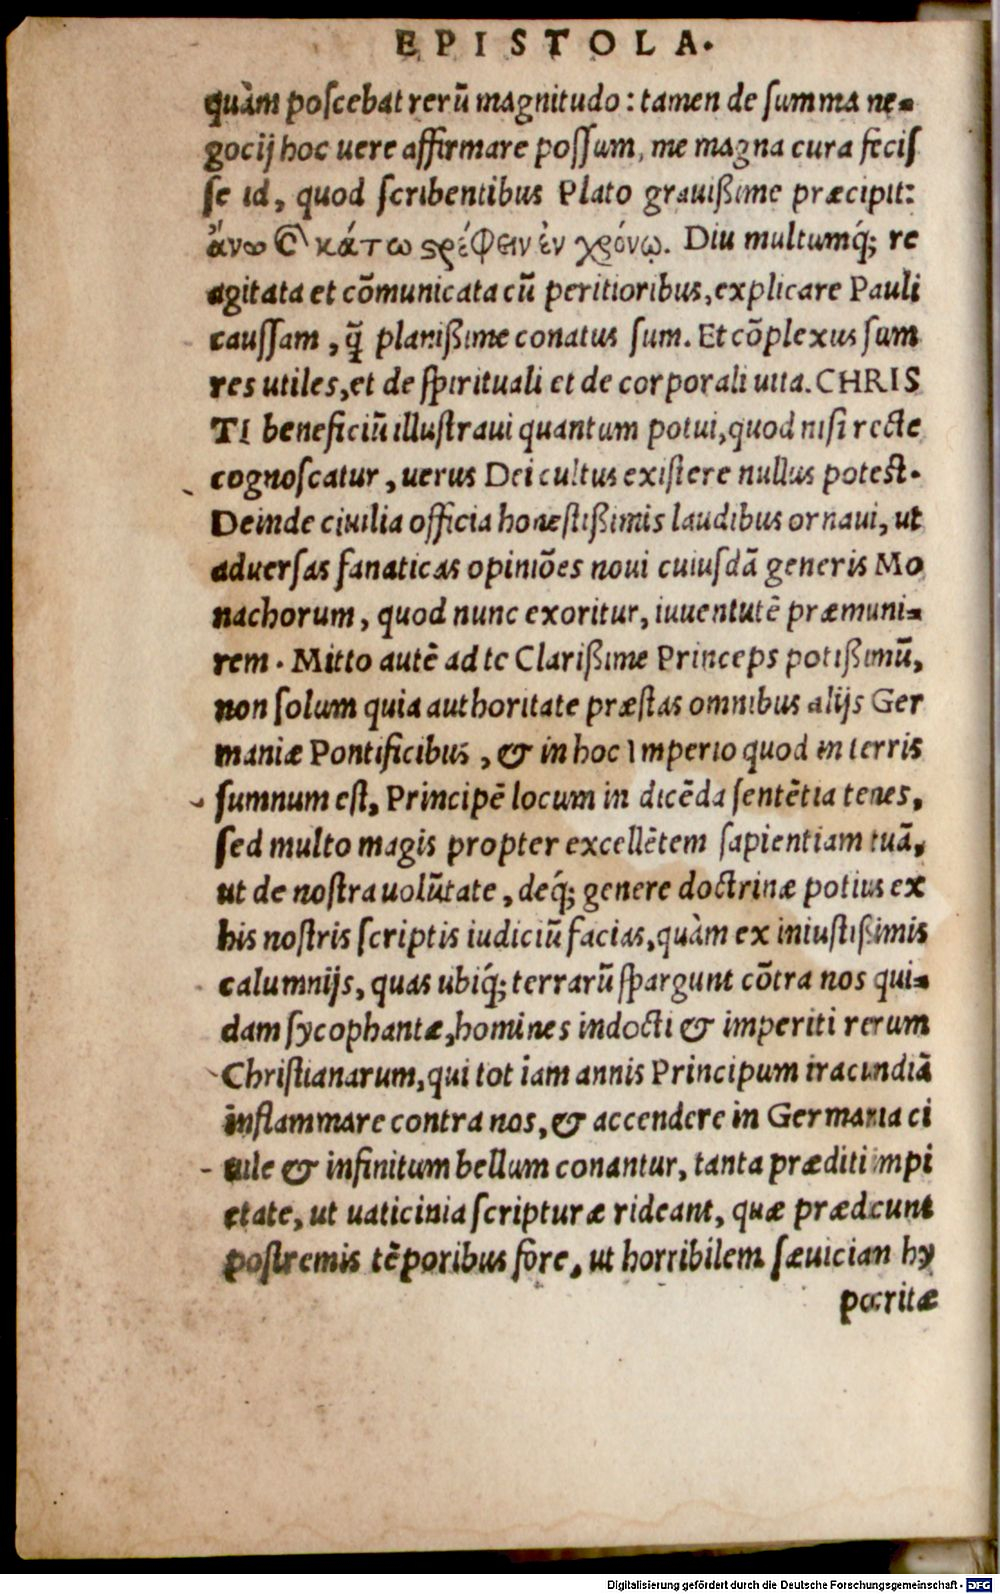 EPISTOLA.
quàm poſcebat rerū magnitudo: tamen de ſumma ne-
gocij hoc uere affirmare poſſum, me magna cura feciſ
ſe id, quod ſcribentibus Plato grauißime præcipit:
ἄνω ϗ κάτω ϛρέφειν ἐν χρόνῳ. Diu multumq́; re
agitata et cōmunicata cū peritioribus, explicare Pauli
cauſſam, q̃ planißime conatus ſum. Et cōplexus ſum
res utiles, et de ſpirituali et de corporali uita. CHRIS
TI beneficiū illuſtraui quantum potui, quod niſi recte
cognoſcatur, uerus Dei cultus exiſtere nullus poteſt.
Deinde ciuilia officia honeſtißimis laudibus ornaui, ut
aduerſas fanaticas opiniōes noui cuiuſdā generis Mo
nachorum, quod nunc exoritur, iuuentutē præmuni-
rem. Mitto autē ad te Clarißime Princeps potißimū,
non ſolum quia authoritate præſtas omnibus alijs Ger
maniæ Pontificibus, & in hoc Imperio quod in terris
ſumnum eſt, Principē locum in dicēda ſentētia tenes,
ſed multo magis propter excellētem ſapientiam tuā,
ut de noſtra uolūtate, deq́; genere doctrinæ potius ex
his noſtris ſcriptis iudiciū facias, quàm ex iniuſtißimis
calumnijs, quas ubiq́; terrarū ſpargunt cōtra nos qui-
dam ſycophantæ, homines indocti & imperiti rerum
Chriſtianarum, qui tot iam annis Principum iracundiā
inflammare contra nos, & accendere in Germania ci
uile & infinitum bellum conantur, tanta præditi impi
etate, ut uaticinia ſcripturæ rideant, quæ prædcunt
poſtremis tēporibus fore, ut horribilem ſæuician hy
pocritæ
Digitalisierung gefördert durch die Deutsche Forschungsgemeinschaft - DFG